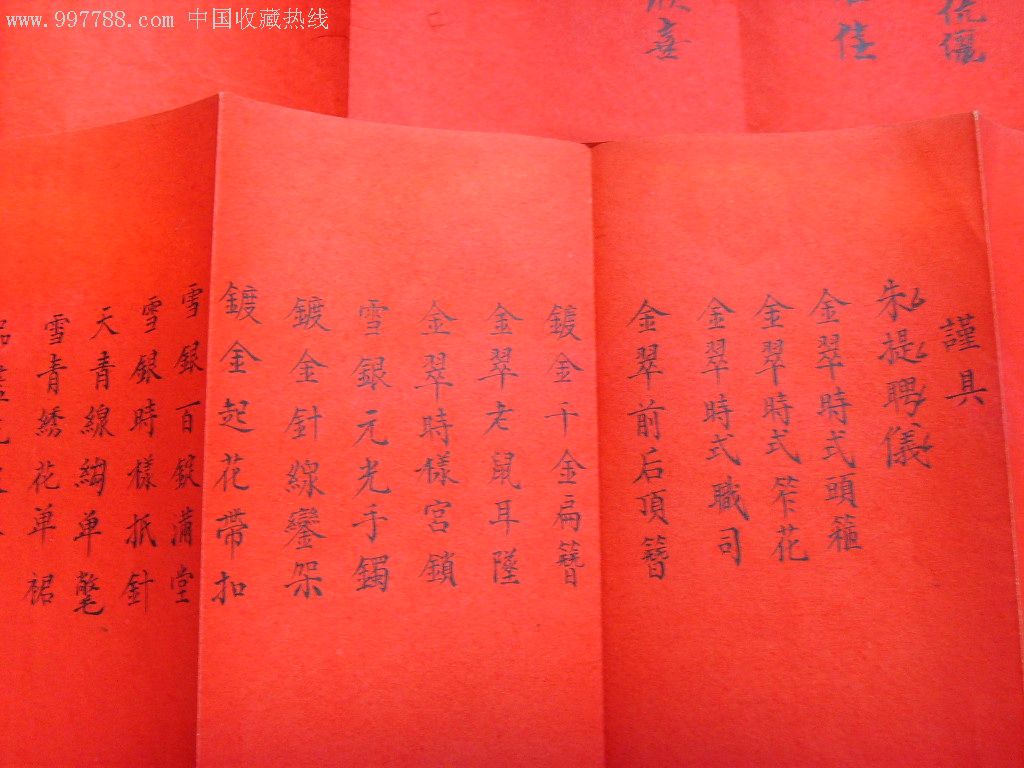 www.997788.com 中国收藏热线
伉儷
佳
喜
謹具
朱提聘儀
金翠時式頭箍
金翠時式笮花
金翠時式職司
金翠前后頂簪
鍍金千金扁簪
金翠老鼠耳墜
金翠時樣宮鎖
雪銀元光手鐲
鍍金針線鑾架
鍍金起花帶扣
雪銀百錠滿堂
雪銀時樣抵針
天青線縐单氅
雪青綉花单裙